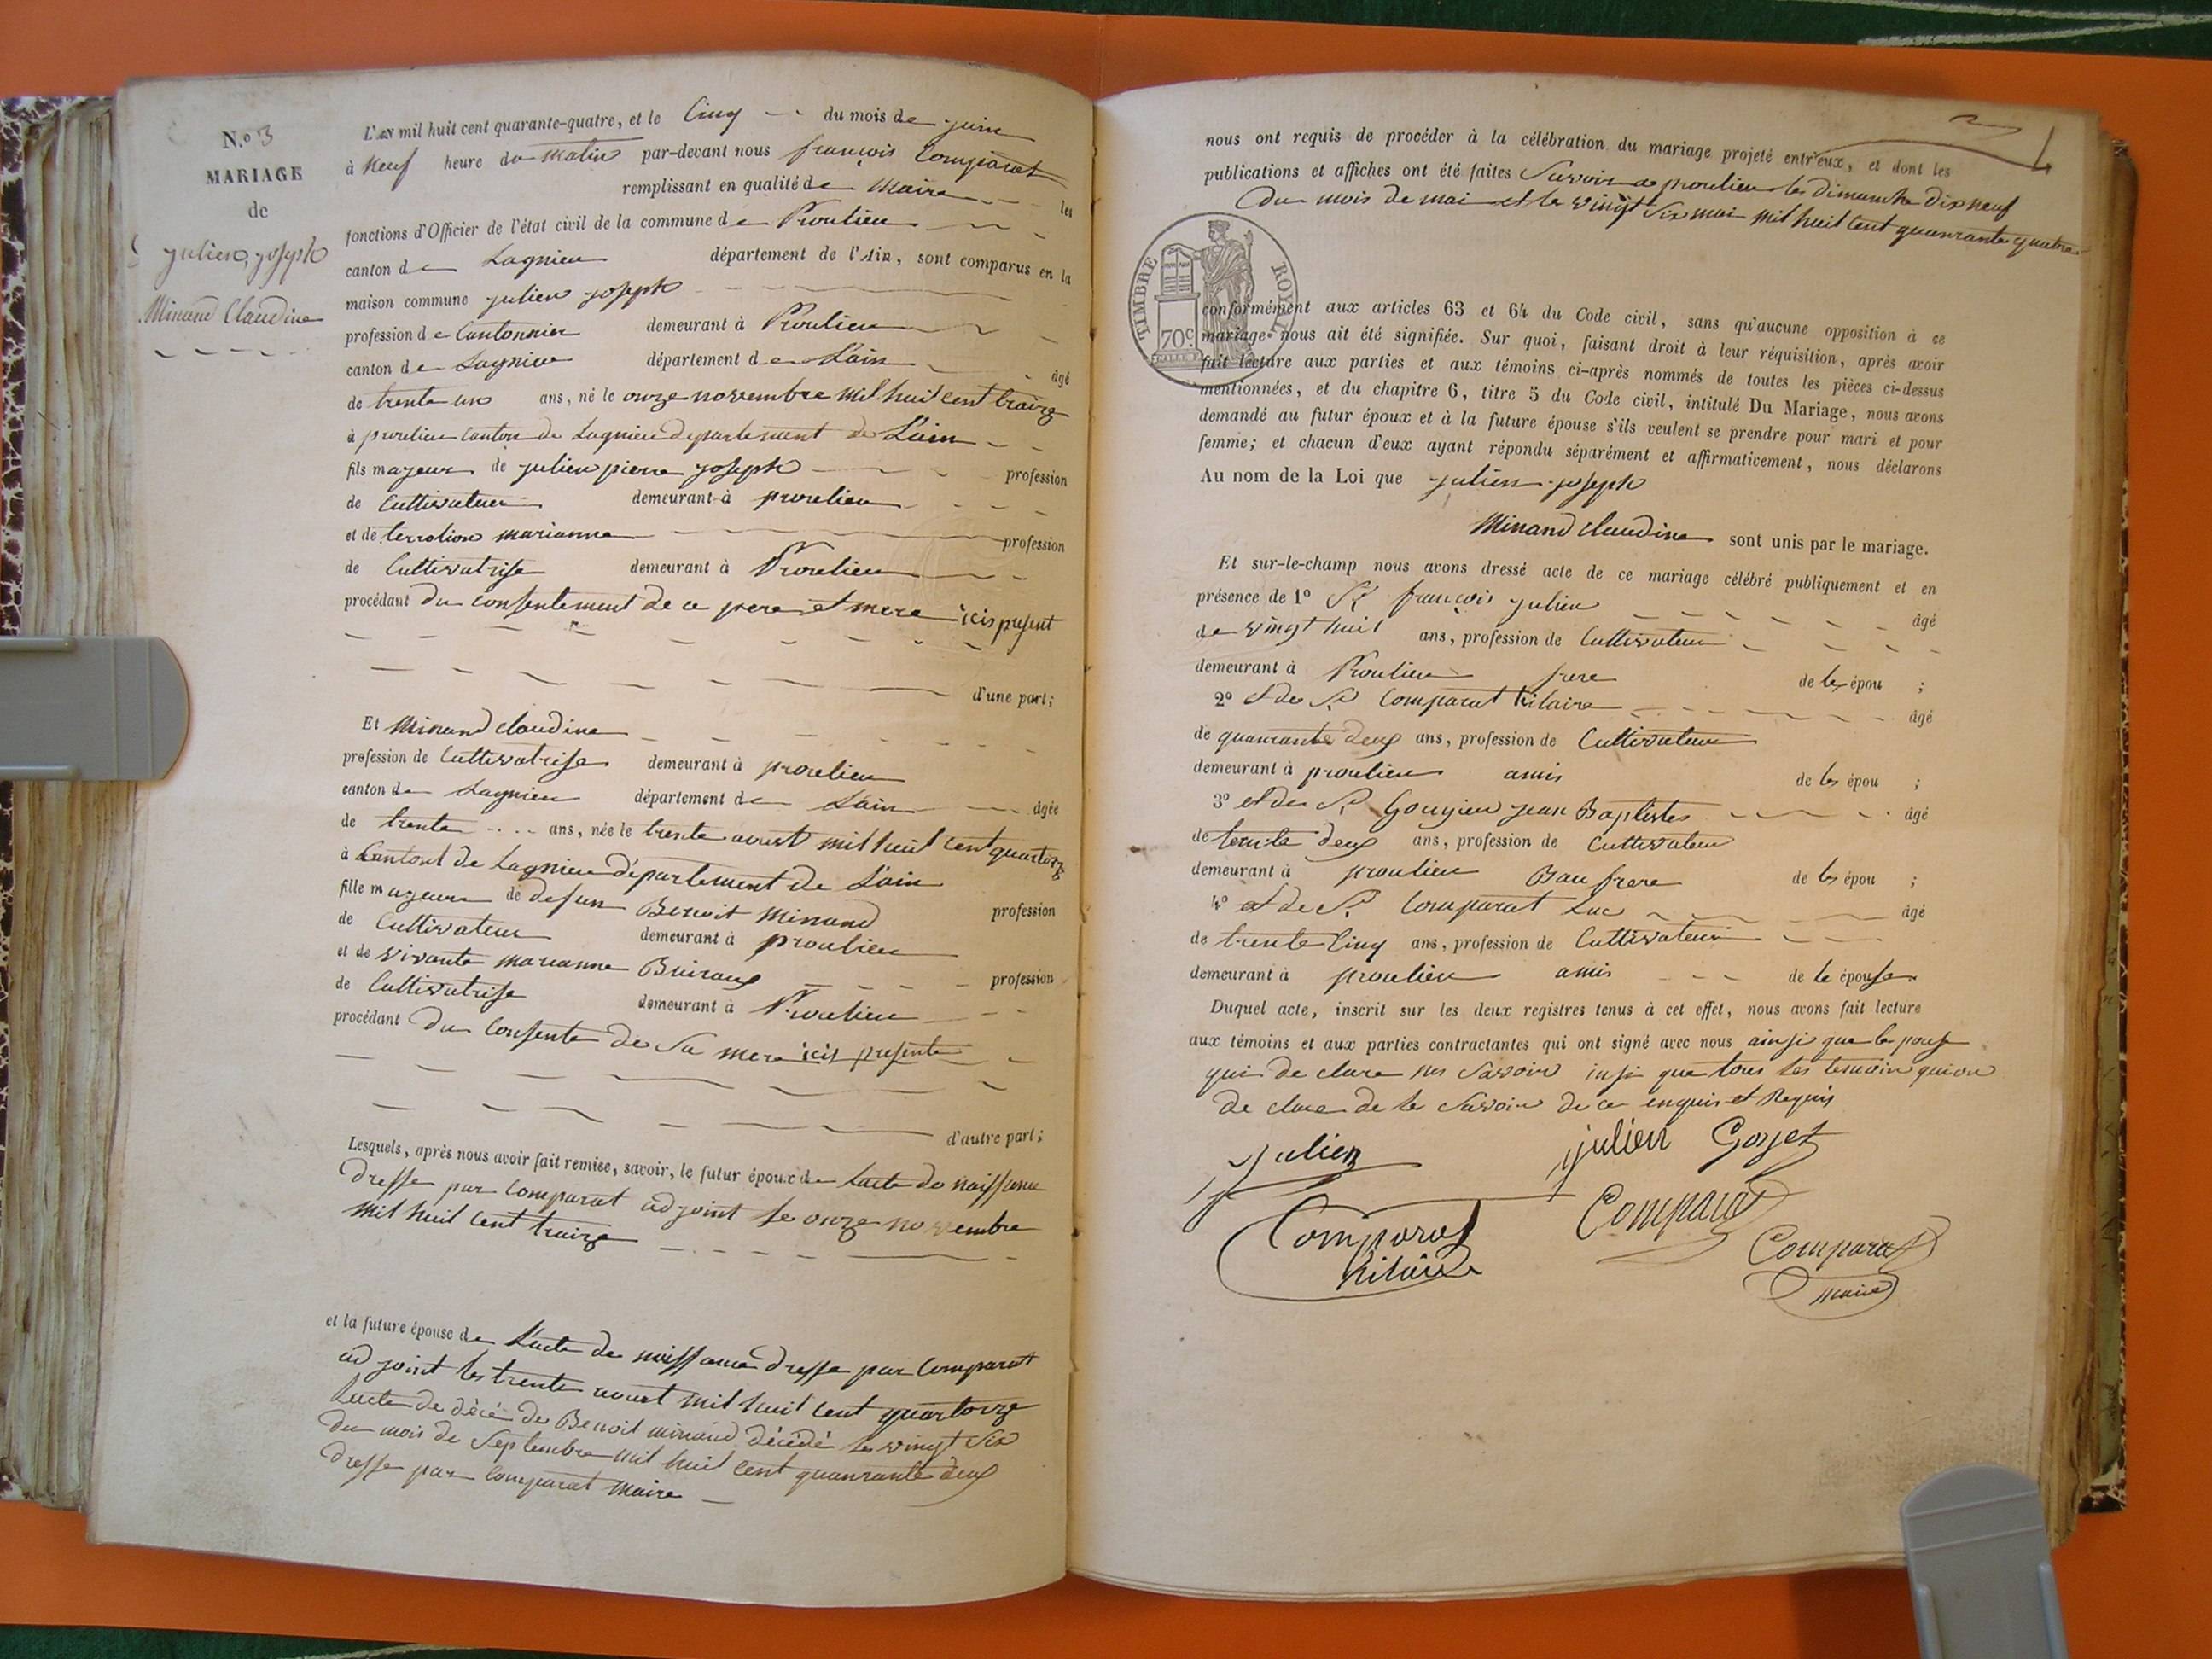 N.o 3
MARIAGE
de
julien, joseph
Minand Claudine
L'an mil huit cent quarante-quatre, et le Cinq du mois de juin
à neuf heure du matin par-devant nous françois Comparat
remplissant en qualité de Maire les
fonctions d'Officier de l'état civil de la commune de Proulieu
canton de Lagnieu département de l'Ain, sont comparus en la
maison commune julien joseph
profession de Cantonnier demeurant à Proulieu
canton de Lagnieu département de L'ain âgé
de trente un ans, né le onze novembre mil huit cent traize
à proulieu Canton de Lagnieu departement de L'ain
fils majeur de julien pierre joseph profession
de Cultivateur demeurant à proulieu
et de marianne profession
de Cultivatrise demeurant à Proulieu
procédant du consentement de ce pere et mere icis present
d'une part;
Et Minand Claudine
profession de Cultivatrise demeurant à proulieu
canton de Lagnieu département de L'ain âgée
de trente ans, née le trente aoust mil huit cent quartorz
à Cantont de Lagnieu département de L'ain
fille majeure de defun Benoit Minand profession
de Cultivateur demeurant à proulieu
et de vivante marianne profession
de Cultivatrise demeurant à Proulieu
procédant du Consente de Sa mere icis presente
d'autre part;
Lesquels, après nous avoir fait remise, savoir, le futur époux de Lacte de naissance
dresse par Comparat adjoint le onze novembre
mil huit Cent traize
et la future épouse de L'acte de naissance dresse par Comparat
adjoint les trente aoust mil huit Cent quartorze
Lacte de décé de Benoit minand décédé les vingt Six
du mois de Septembre mil huit Cent quanrante deux
dresse par Comparat Maire
nous ont requis de procéder à la célébration du mariage projeté entr'eux, et dont les
publications et affiches ont été faites Savoir a proulieu les dimanche dix neuf
du mois de mai et le vingt Six mai mil huit Cent quanrante quatre
TIMBRE ROYAL
70c
conformément aux articles 63 et 64 du Code civil, sans qu'aucune opposition à ce
mariage nous ait été signifiée. Sur quoi, faisant droit à leur réquisition, après avoir
fait lecture aux parties et aux témoins ci-après nommés de toutes les pièces ci-dessus
mentionnées, et du chapitre 6, titre 5 du Code civil, intitulé Du Mariage, nous avons
demandé au futur époux et à la future épouse s'ils veulent se prendre pour mari et pour
femme; et chacun d'eux ayant répondu séparément et affirmativement, nous déclarons
Au nom de la Loi que julien joseph
Minand Claudine sont unis par le mariage.
Et sur-le-champ nous avons dressé acte de ce mariage célébré publiquement et en
présence de 1o Sr françois julien âgé
de vingt huit ans, profession de Cultivateur
demeurant à Proulieu frere de les épou ;
2o et de Sr Comparat hilaire âgé
de quanrante deux ans, profession de Cultivateur
demeurant à proulieu amis de les épou ;
3o et de Sr jean Baptistes âgé
de trente deux ans, profession de Cultivateur
demeurant à proulieu Bau frere de les épou ;
4o et de Sr Comparat Luc âgé
de trente Cinq ans, profession de Cultivateur
demeurant à proulieu amis de le épouse
Duquel acte, inscrit sur les deux registres tenus à cet effet, nous avons fait lecture
aux témoins et aux parties contractantes qui ont signé avec nous ainsi que
qui de clare Savoir insi que tous les temoin qui on
de clare de le Savoir de ce enquis et Requis
julien
julien Goyet
Comparat
hilaire
Comparat
Comparat
maire